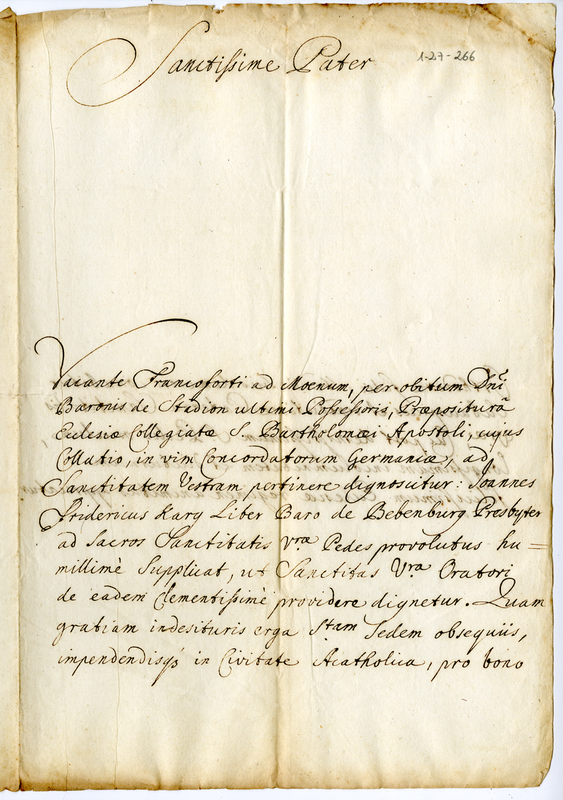 Sanctissime Pater
1-27-266
Vacante Francoforti ad Moenum, per obitum Dni
Baronis de Stadion ultimi Possessoris, Præpositurâ
Ecclesiæ Collegiatæ S. Bartholomæi Apostoli, cujus
Collatio, in vim Concordatorum Germaniæ, ad
Sanctitatem Vestram pertinere dignoscitur: Joannes
Fridericus Karg Liber Baro de Bebenburg Presbyter
ad Sacros Sanctitatis Vræ Pedes provolutus hu=
millimè Supplicat, ut Sanctitas Vra Oratori
de eadem Clementissimè providere dignetur. Quam
gratiam indesituris erga Stam Sedem obsequiis,
impendendisq; in Civitate Acatholica, pro bono